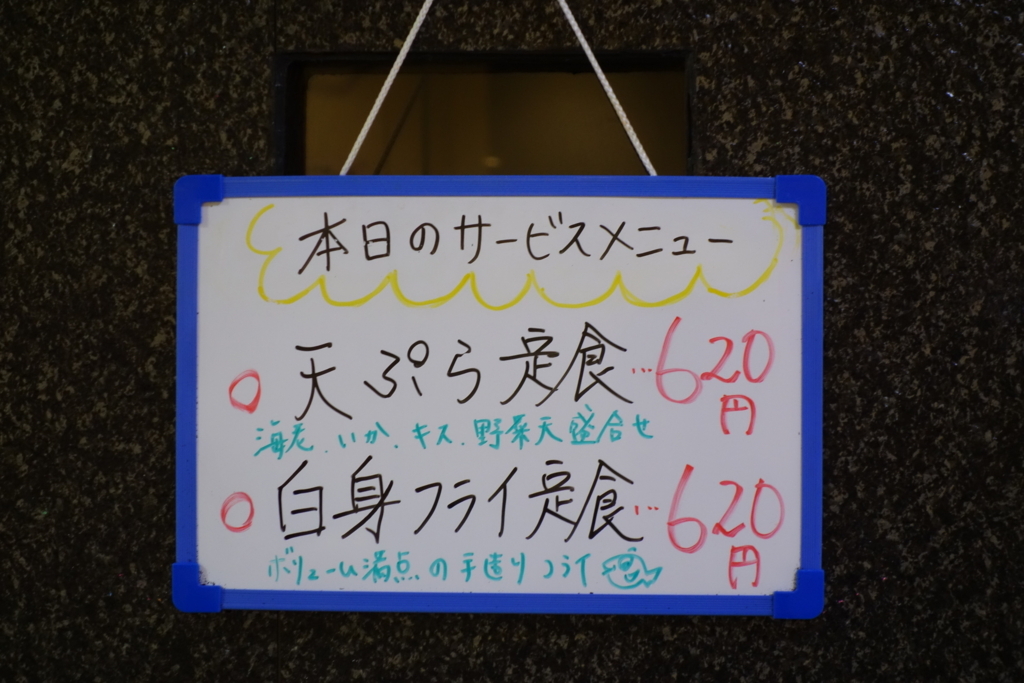 本日のサービスメニュー
○ 天ぷら定食…620円
海老.いか.キス.野菜天盛合せ
○ 白身フライ定食…620円
ボリューム満点の手造りフライ